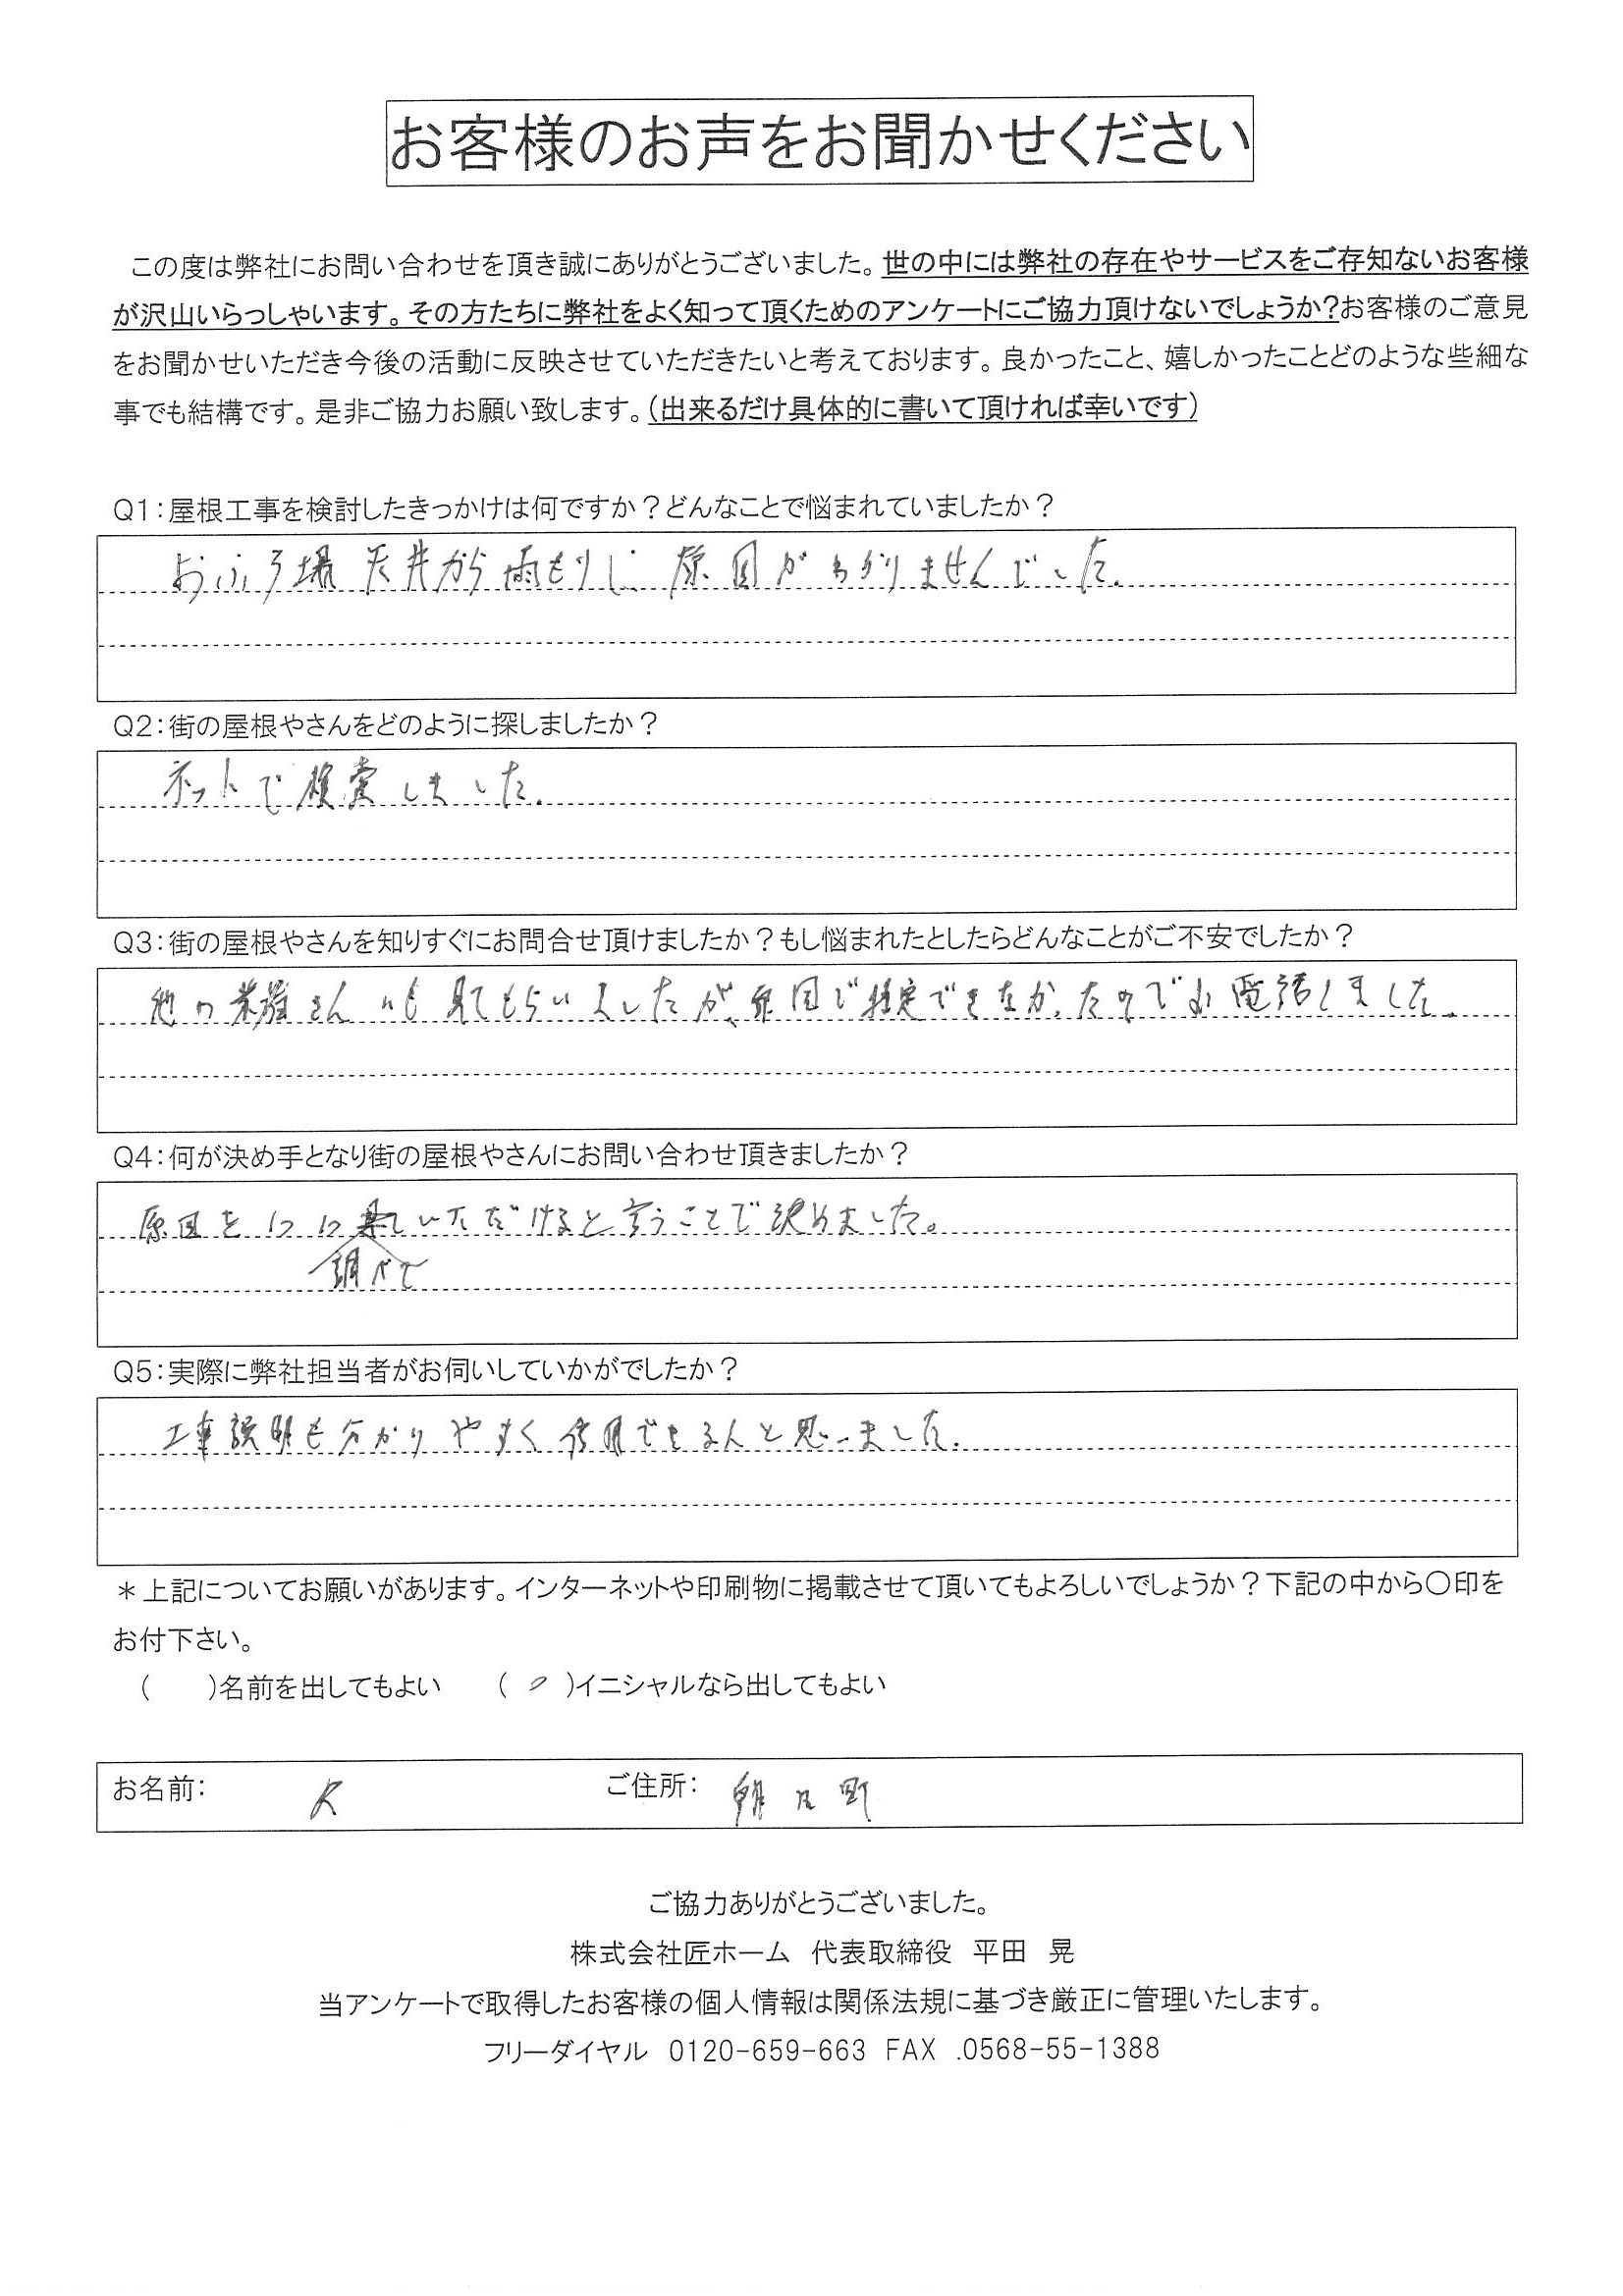 お客様のお声をお聞かせください
この度は弊社にお問い合わせを頂き誠にありがとうございました。世の中には弊社の存在やサービスをご存知ないお客様
が沢山いらっしゃいます。その方たちに弊社をよく知って頂くためのアンケートにご協力頂けないでしょうか?お客様のご意見
をお聞かせいただき今後の活動に反映させていただきたいと考えております。良かったこと、嬉しかったことどのような些細な
事でも結構です。是非ご協力お願い致します。(出来るだけ具体的に書いて頂ければ幸いです)
Q1:屋根工事を検討したきっかけは何ですか?どんなことで悩まれていましたか?
おふろ場天井から雨もりし、原因がわかりませんでした。
Q2:街の屋根やさんをどのように探しましたか?
ネットで検索しました。
Q3:街の屋根やさんを知りすぐにお問合せ頂けましたか?もし悩まれたとしたらどんなことがご不安でしたか?
他の業者さんにも見てもらいましたが、原因が特定できなかったのでお電話しました。
Q4:何が決め手となり街の屋根やさんにお問い合わせ頂きましたか?
原因を いただけると言うことで決めました。
調べて
Q5:実際に弊社担当者がお伺いしていかがでしたか?
工事説明も分かりやすく信用できる人と思いました。
*上記についてお願いがあります。インターネットや印刷物に掲載させて頂いてもよろしいでしょうか?下記の中から○印を
お付下さい。
( )名前を出してもよい (○)イニシャルなら出してもよい
お名前: K ご住所: 朝日町
ご協力ありがとうございました。
株式会社匠ホーム 代表取締役 平田 晃
当アンケートで取得したお客様の個人情報は関係法規に基づき厳正に管理いたします。
フリーダイヤル 0120-659-663 FAX .0568-55-1388